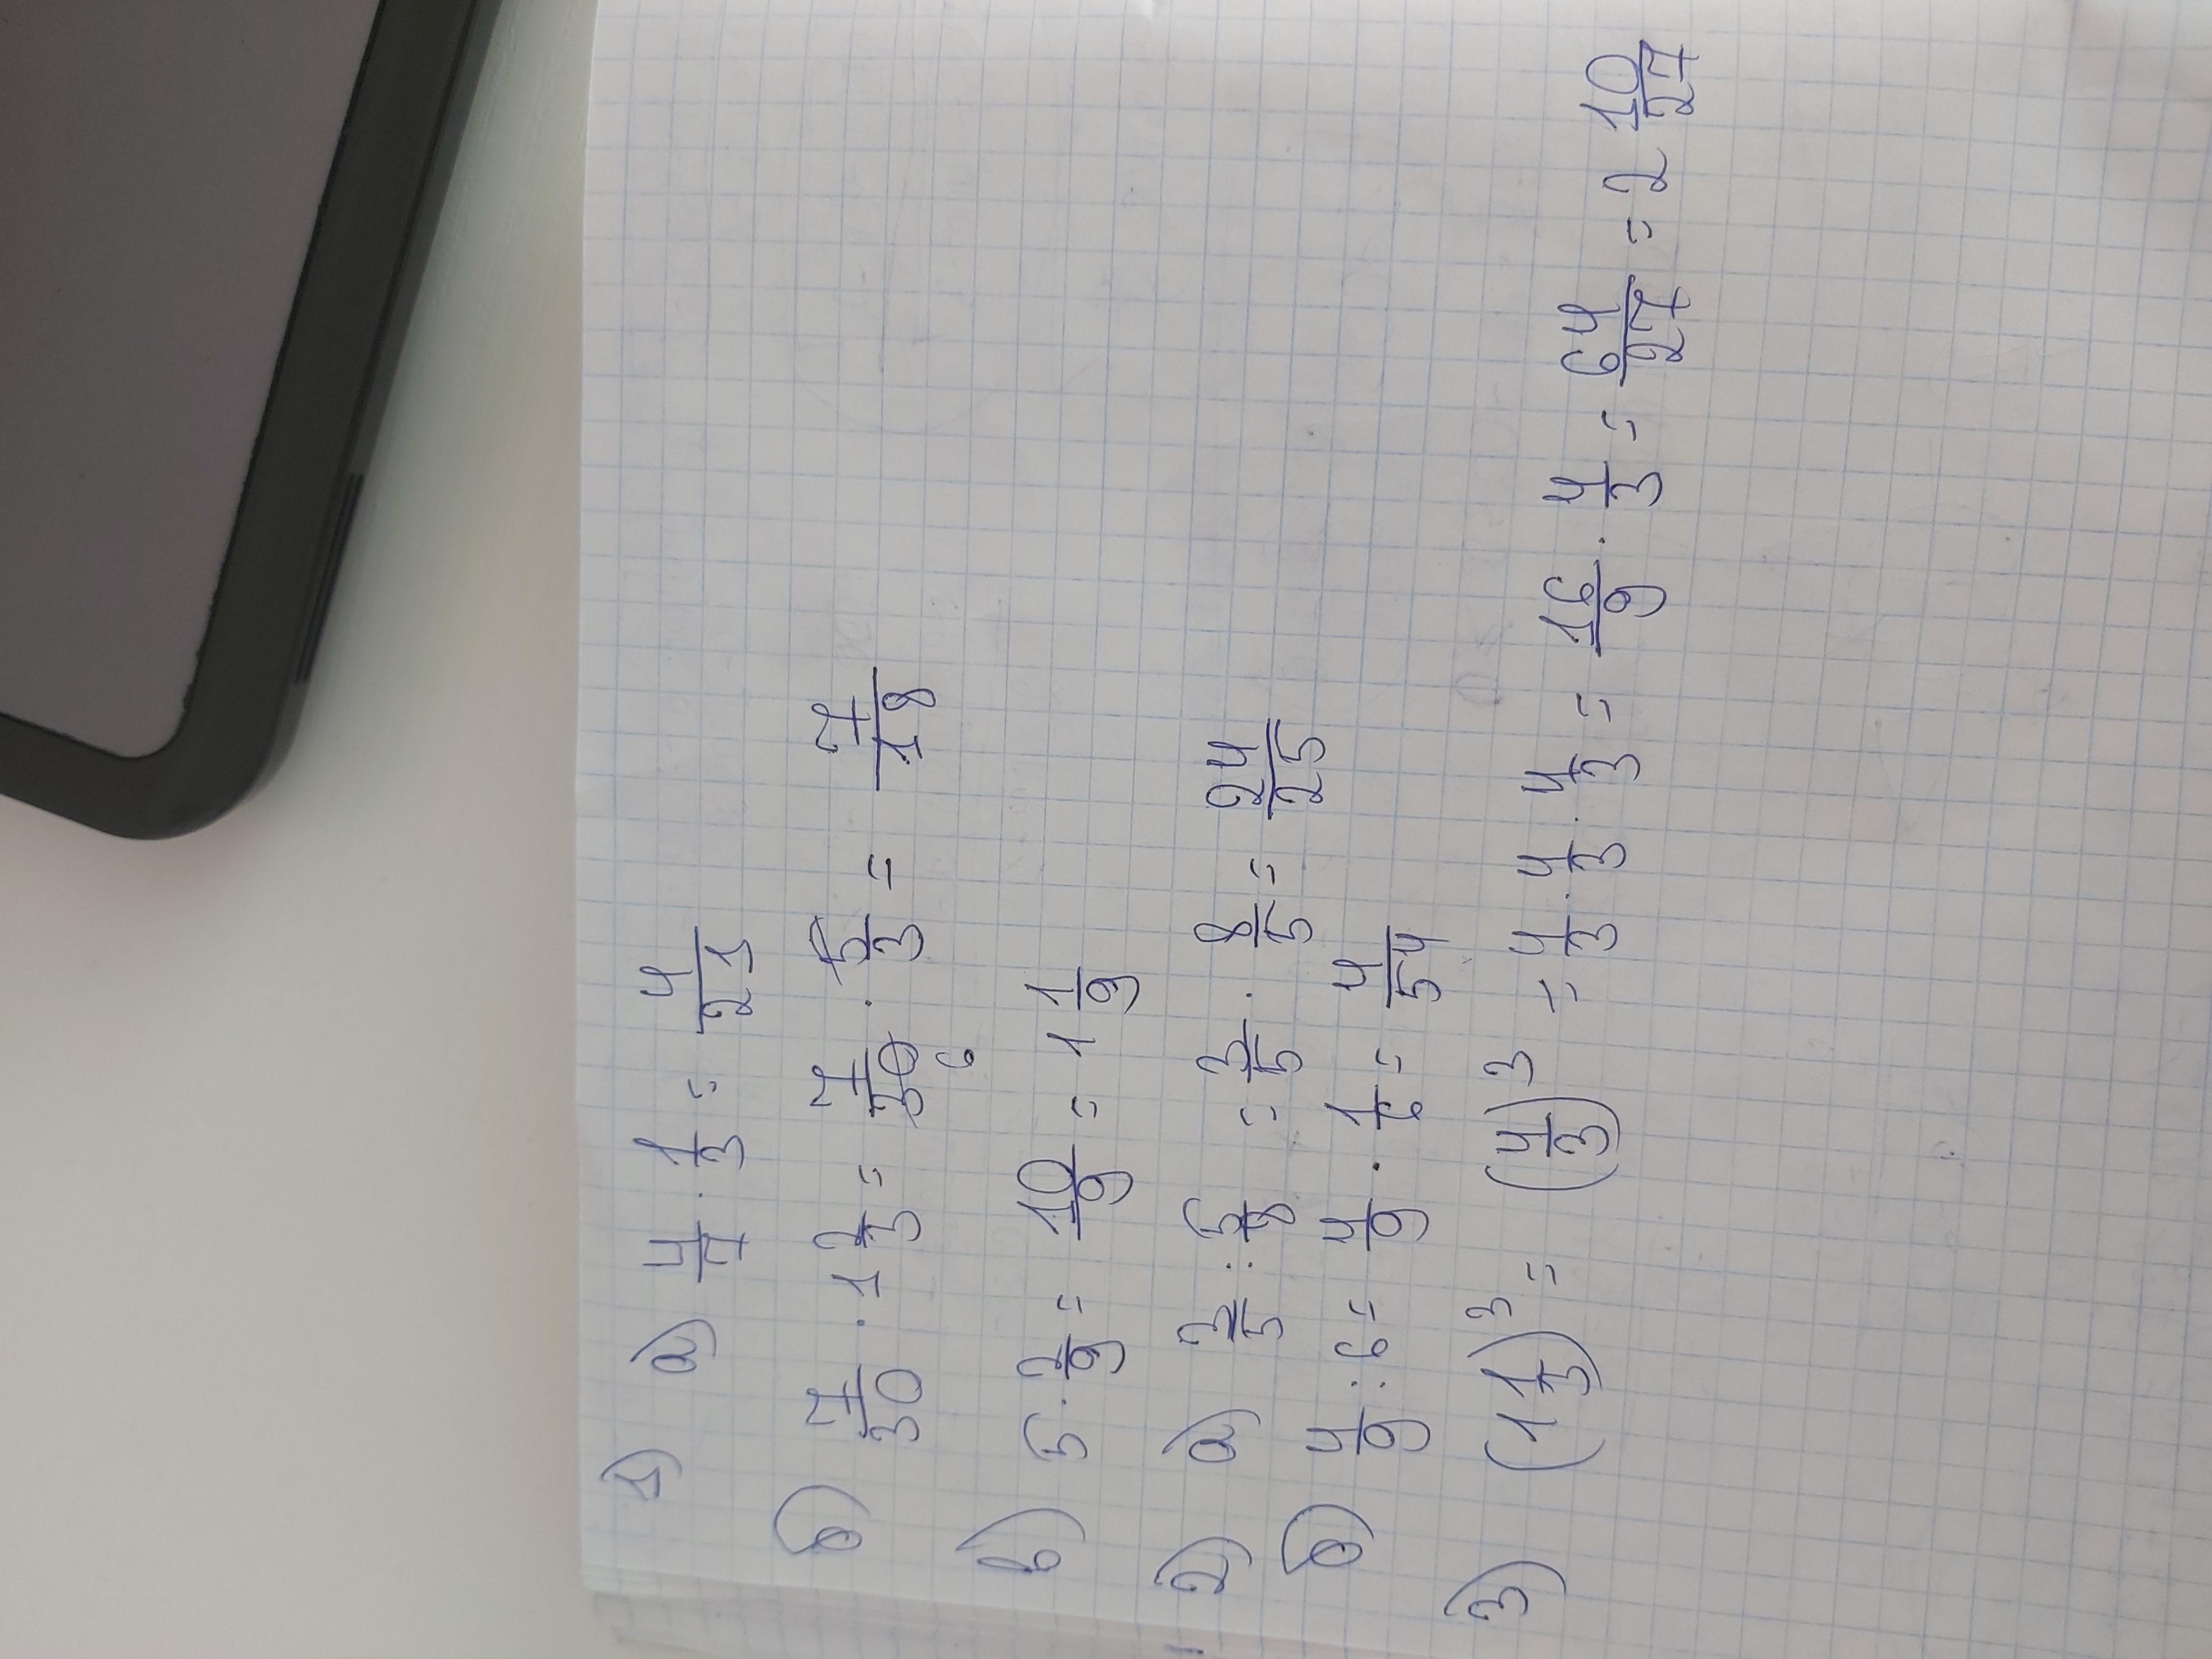 1) а) 4/7 · 1/3 = 4/21
б) 7/30 · 1 2/3 = 7/30 6 · 5/3 = 7/18
в) 5 · 2/9 = 10/9 = 1 1/9
2) а) 3/5 : 5/8 = 3/5 · 8/5 = 24/25
б) 4/9 : 6 = 4/9 · 1/6 = 4/54
3) (1 1/3)³ = (4/3)³ = 4/3 · 4/3 · 4/3 = 16/9 · 4/3 = 64/27 = 2 10/27